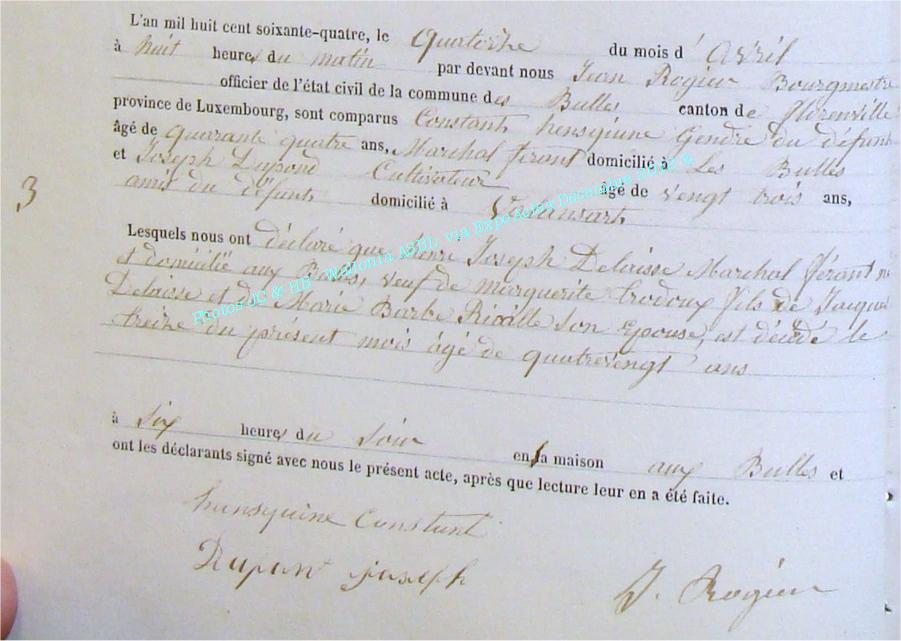 L'an mil huit cent soixante-quatre, le Quatorze du mois d' Avril
à huit heures du matin par devant nous Jean Rogier Bourgmestre
officier de l'état civil de la commune des Bulles canton de Florenville
province de Luxembourg, sont comparus Constant hensquine Gendre du défunt
âgé de quarante quatre ans, Marchal férant domicilié à Les Bulles
et Joseph Dupond Cultivateur âgé de vengt trois ans,
amit du défunt domicilié à
3
Lesquels nous ont déclaré que henri Joseph Delaisse Marchal férant
et domicilié aux Bulles, veuf de marguerite trodoux fils de Jaque
Delaisse et de Marie Barbe Son Epouse, est décédé le
treize du présent mois âgé de quatrevengt ans
à Six heures du Soir en sa maison aux Bulles et
ont les déclarants signé avec nous le présent acte, après que lecture leur en a été faite.
hensquine Constant
Dupont joseph
J. Rogier
Photos JC & HB - Walfonia ASBL via Expo Actes Décembre